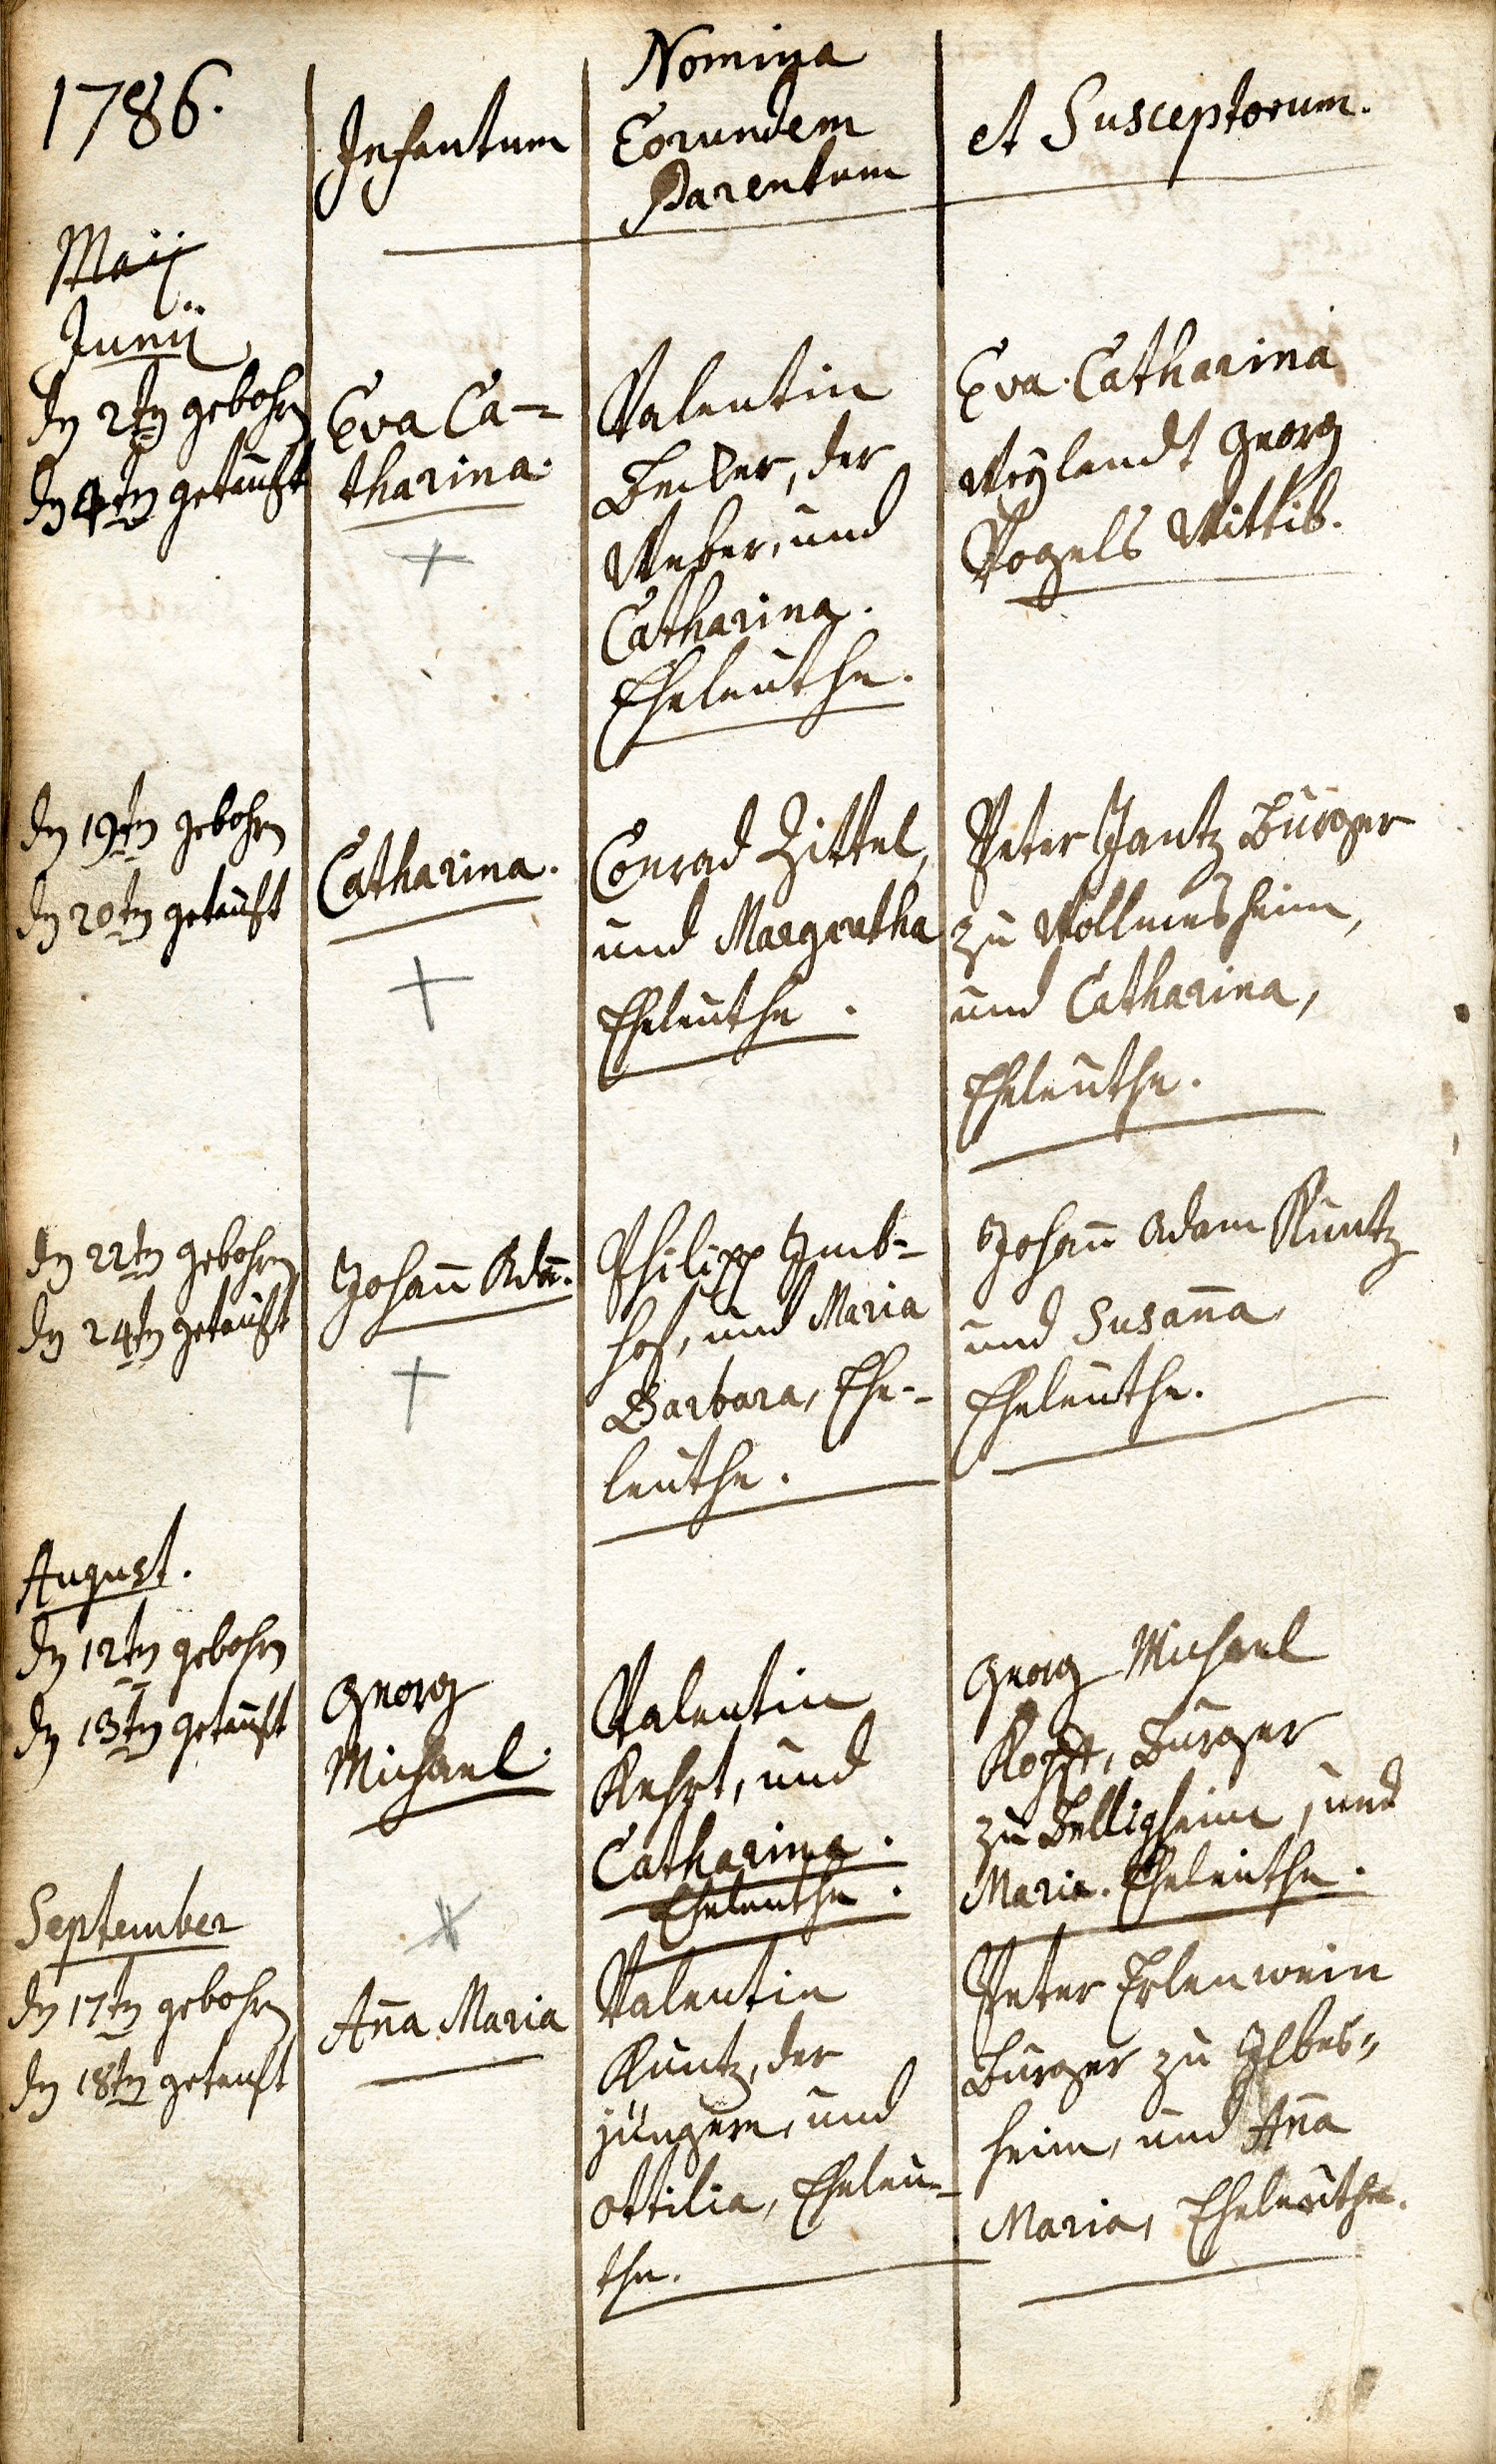 1786.
Infantum
Nomina
Eorundem
Parentum
et Susceptorum.
Maij
Junii
dn 2tn gebohrn
dn 4tn getaufft
Eva Ca=
tharina.
Valentin
Becker, der
Weber, und
Catharina.
Eheleuthe.
Eva Catharina
Weylandt Georg
Vogels Wittib.
dn 19tn gebohrn
dn 20tn getaufft
Catharina.
Conrad Zittel,
und Margretha
Eheleuthe.
Peter Jantz Burger
zu Wollmesheim,
und Catharina,
Eheleuthe.
dn 22tn gebohrn
dn 24tn getaufft
Johan̄ Adam̄.
Philipp Imb=
hof, und Maria
Barbara, Ehe=
leuthe.
Johan̄ Adam Kuntz
und Susan̄a
Eheleuthe.
August.
dn 12tn gebohrn
dn 13tn getaufft
Georg
Michael.
Valentin
Kehrt, und
Catharina.
Eheleuthe.
Georg Michael
Kopff, Burger
zu Belligheim, und
Maria. Eheleuthe.
September
dn 17tn gebohrn
dn 18tn getauft
An̄a Maria
Valentin
Kuntz, der
jüngere, und
Ottilia, Eheleu=
the.
Peter Erlenwein
Burger zu Ilbes=
heim, und An̄a
Maria, Eheleuthe.